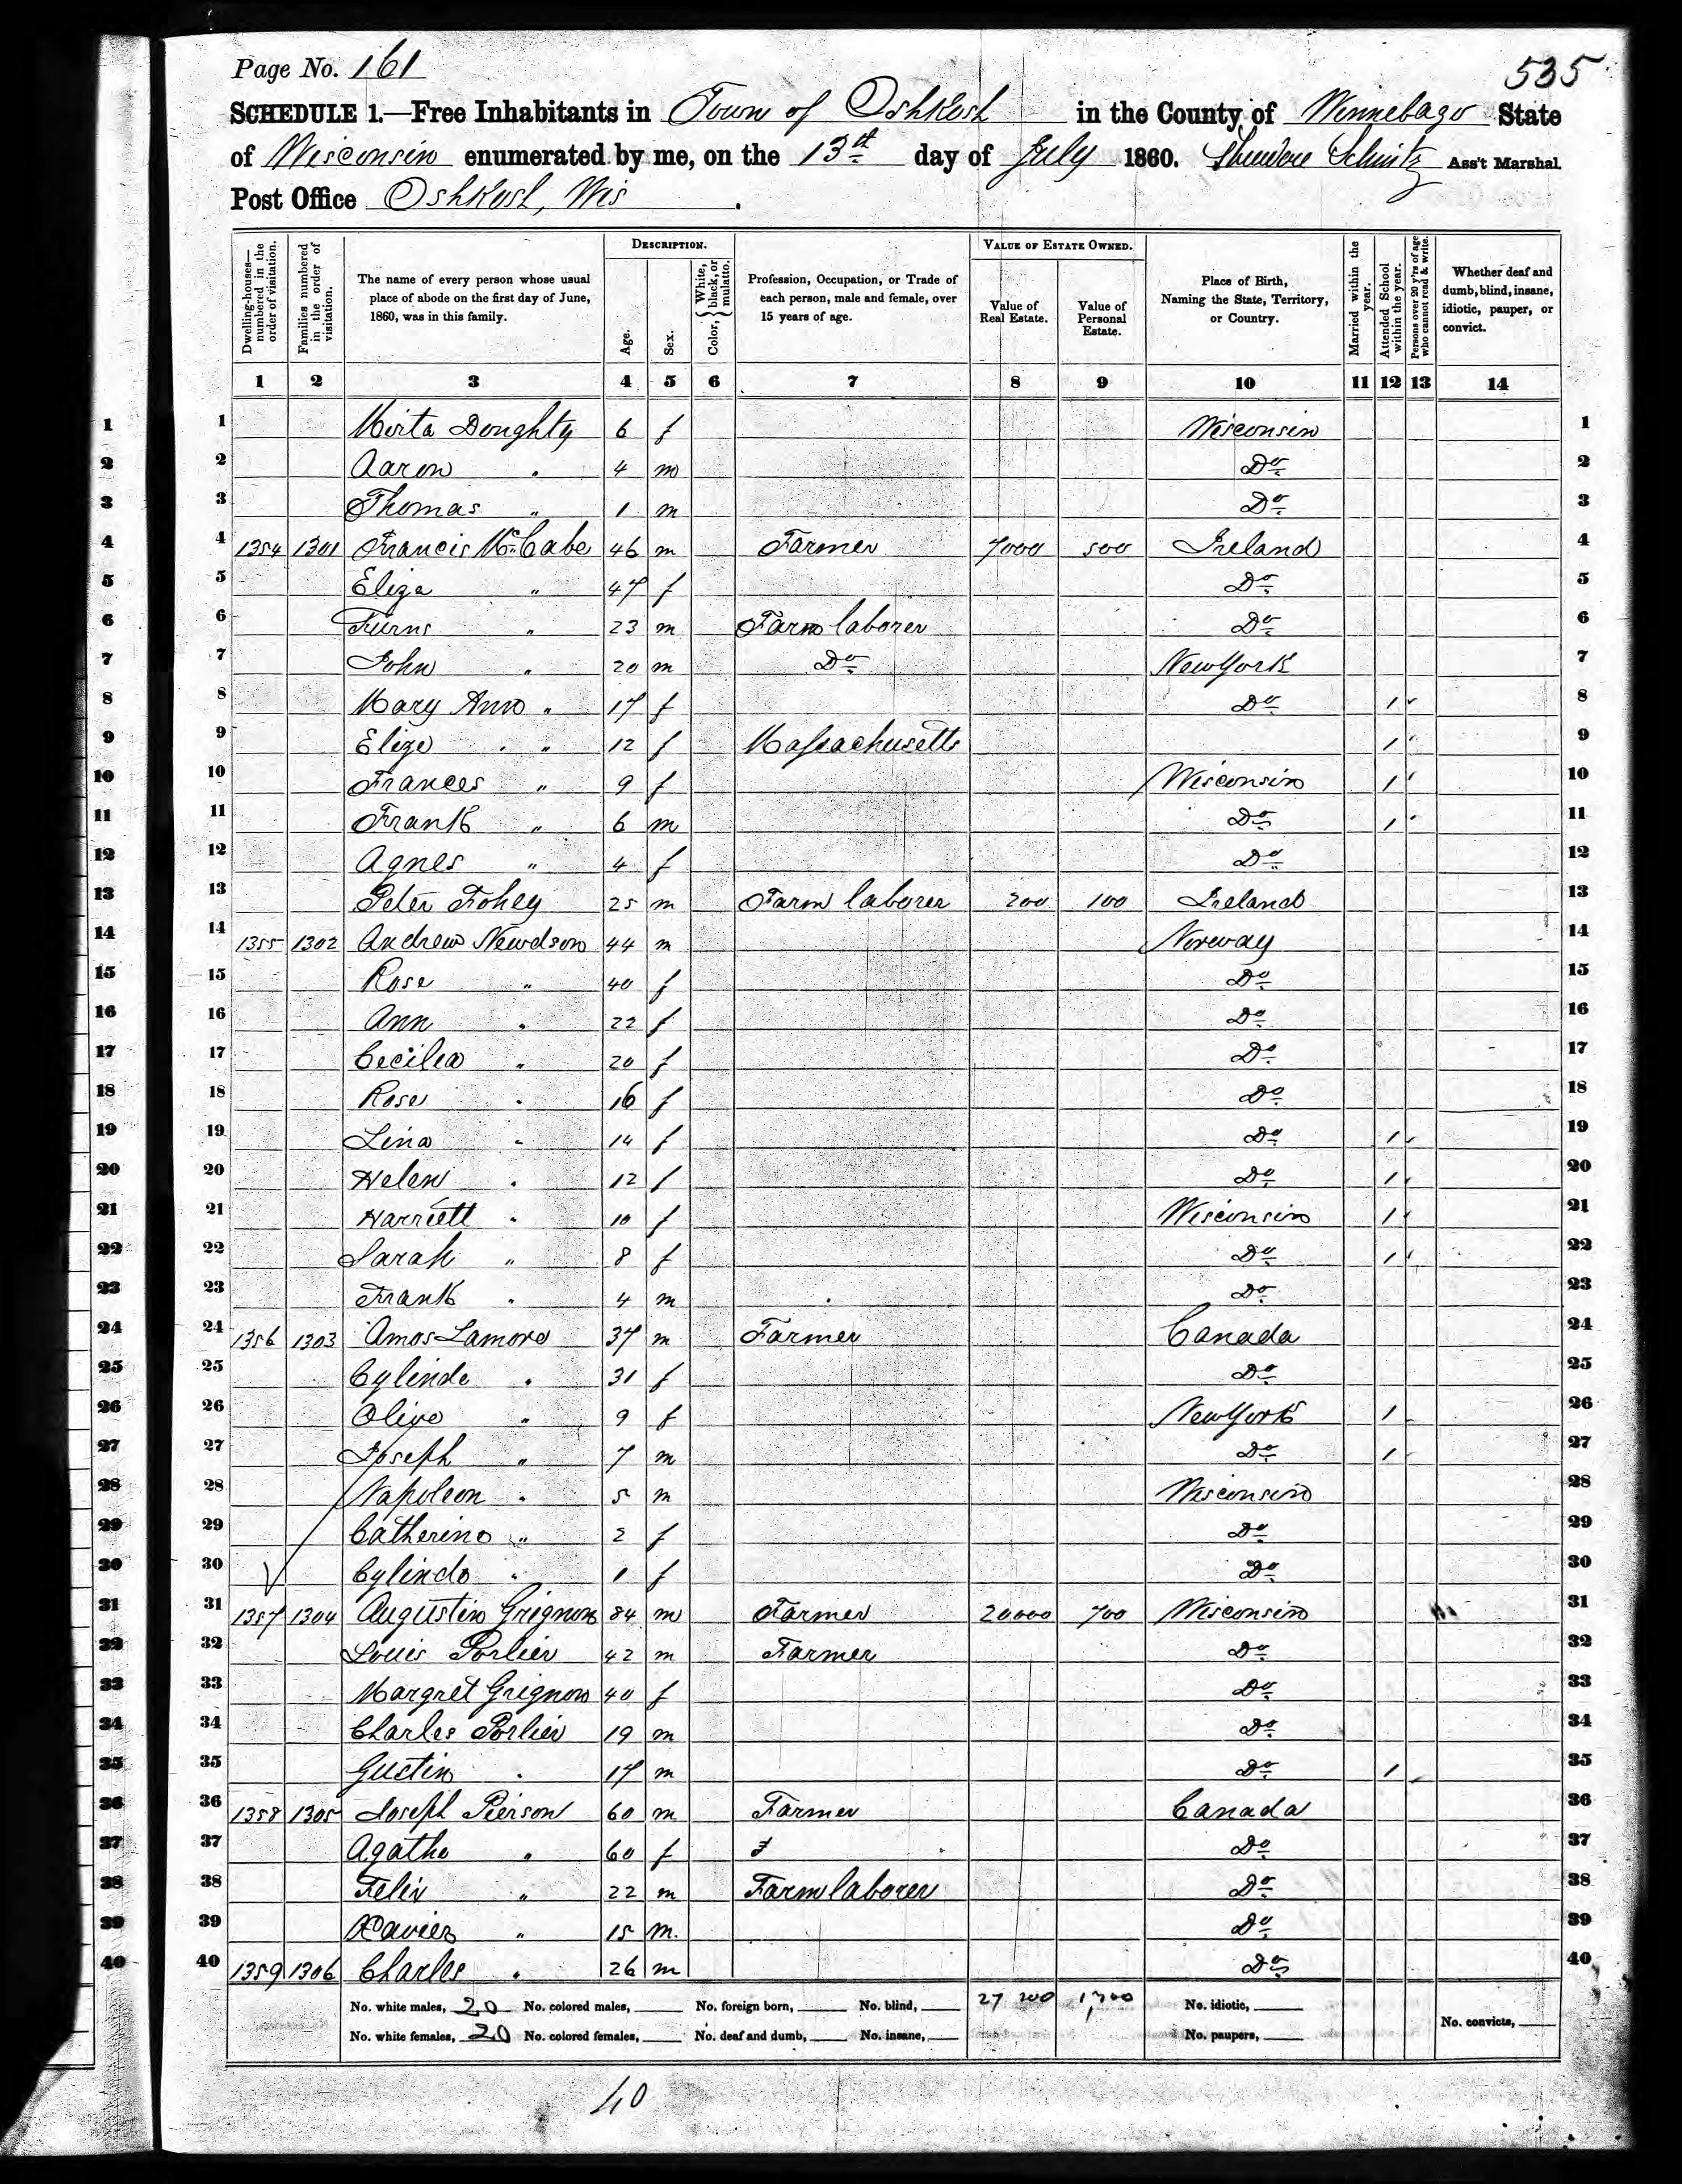 Page No. 161
535
SCHEDULE 1.—Free Inhabitants in Town of Oshkosh in the County of Winnebago State
of Wisconsin enumerated by me, on the 13th day of July 1860. Theodore Schintz Ass't Marshal.
Post Office Oshkosh, Wis.
Dwelling-houses—numbered in the order of visitation.
Families numbered in the order of visitation.
The name of every person whose usual place of abode on the first day of June, 1860, was in this family.
DESCRIPTION.
Age.
Sex.
Color, { White, black, or mulatto.
Profession, Occupation, or Trade of each person, male and female, over 15 years of age.
VALUE OF ESTATE OWNED.
Value of Real Estate.
Value of Personal Estate.
Place of Birth, Naming the State, Territory, or Country.
Married within the year.
Attended School within the year.
Persons over 20 y'rs of age who cannot read & write.
Whether deaf and dumb, blind, insane, idiotic, pauper, or convict.
1 2 3 4 5 6 7 8 9 10 11 12 13 14
1 1 Mirta Doughty 6 f Wisconsin 1
2 2 Aaron " 4 m Do 2
3 3 Thomas " 1 m Do 3
4 4 1354 1301 Francis McCabe 46 m Farmer 7000 500 Ireland 4
5 5 Eliza " 47 f Do 5
6 6 Furns " 23 m Farm laborer Do 6
7 7 John " 20 m Do New York 7
8 8 Mary Ann " 17 f Do 1 8
9 9 Eliza " 12 f Massachusetts 1 9
10 10 Frances " 9 f Wisconsin 1 10
11 11 Frank " 6 m Do 1 11
12 12 Agnes " 4 f Do 12
13 13 Peter Fohey 25 m Farm laborer 200 100 Ireland 13
14 14 1355 1302 Andrew Newdson 44 m Norway 14
15 15 Rose " 40 f Do 15
16 16 Ann " 22 f Do 16
17 17 Cecilea " 20 f Do 17
18 18 Rose " 16 f Do 18
19 19 Lina " 14 f Do 1 19
20 20 Helen " 12 f Do 1 20
21 21 Harriett " 10 f Wisconsin 1 21
22 22 Sarah " 8 f Do 1 22
23 23 Frank " 4 m Do 23
24 24 1356 1303 Amos Lamore 37 m Farmer Canada 24
25 25 Cylinde " 31 f Do 25
26 26 Olive " 9 f New York 1 26
27 27 Joseph " 7 m Do 1 27
28 28 Napoleon " 5 m Wisconsin 28
29 29 Catherine " 2 f Do 29
30 30 Cylinde " 1 f Do 30
31 31 1357 1304 Augustin Grignon 84 m Farmer 20000 700 Wisconsin 31
32 32 Louis Porlier 42 m Farmer Do 32
33 33 Margret Grignon 40 f Do 33
34 34 Charles Porlier 19 m Do 34
35 35 Gustin " 17 m Do 1 35
36 36 1358 1305 Joseph Pierson 60 m Farmer Canada 36
37 37 Agathe " 60 f Do 37
38 38 Felix " 22 m Farm laborer Do 38
39 39 Xavier " 15 m. Do 39
40 40 1359 1306 Charles " 26 m Do 40
No. white males, 20 No. colored males, No. foreign born, No. blind, 27 200 1,300 No. idiotic,
No. white females, 20 No. colored females, No. deaf and dumb, No. insane, No. paupers, No. convicts,
40